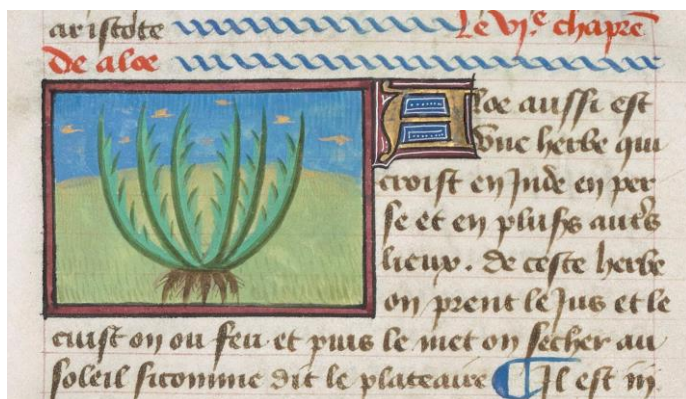 aristote Le vj.e chapre
de aloe
Aloe aussi est
vne herbe qui
croist en jnde en per
se et en plusrs autrs
lieux. de ceste herbe
on prent le jus et le
cuist on ou feu et puis le met on secher au
soleil sicomme dit le plateaire Il est iij